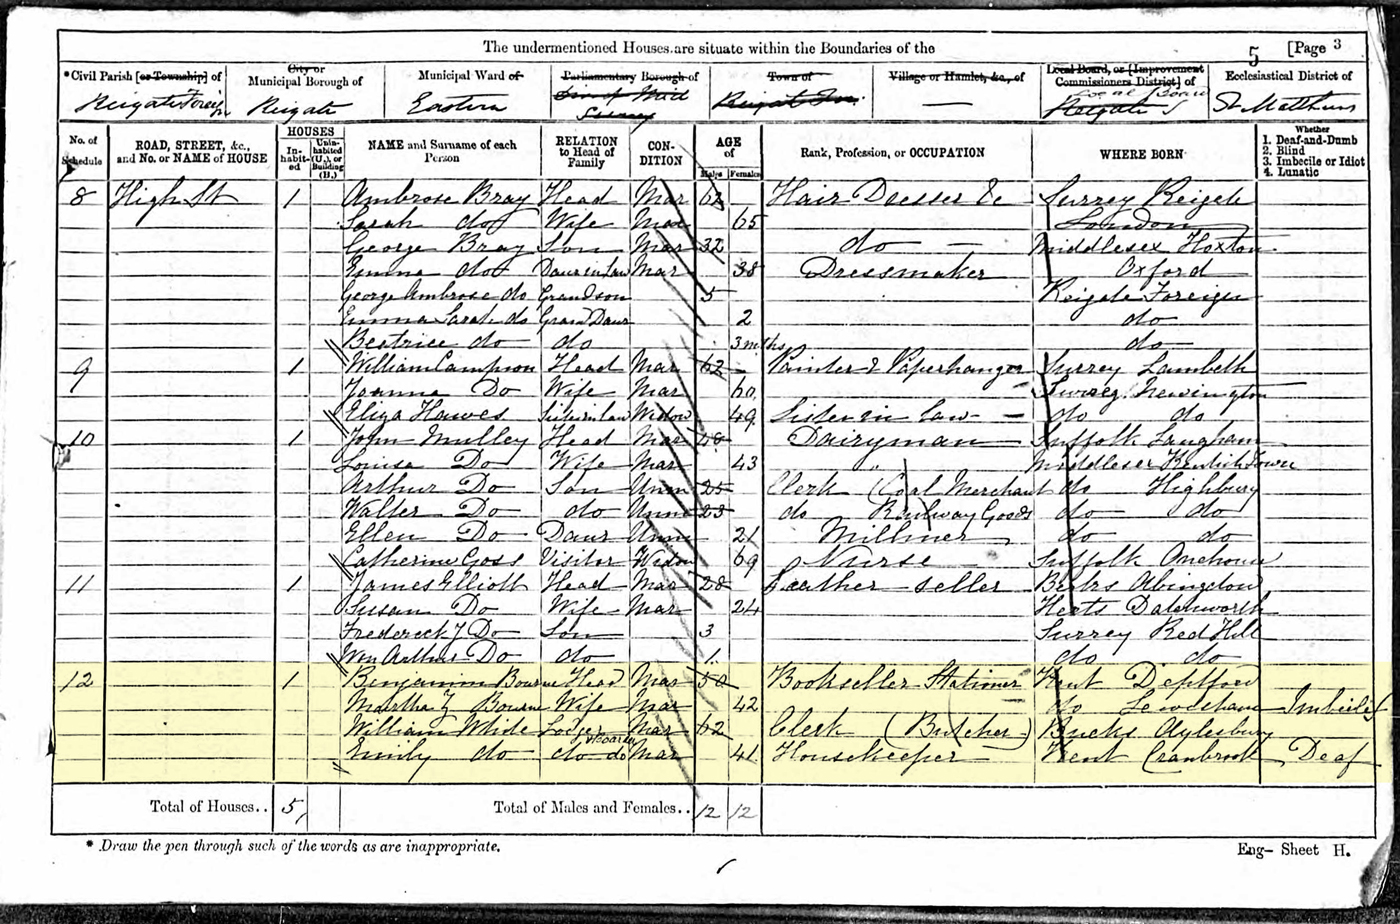 The undermentioned Houses are situate within the Boundaries of the 5 [Page 3
*Civil Parish [or Township] of
City or Municipal Borough of
Municipal Ward of
Parliamentary Borough of
Town of
Village or Hamlet, &c., of
Local Board, or [Improvement Commissioners District] of
Ecclesiastical District of
Reigate Foreign Reigate Eastern Surrey — Local Board Reigate St Matthews
No. of Schedule
ROAD, STREET, &c., and No. or NAME of HOUSE
HOUSES
Inhabited
Uninhabited (U.), or Building (B.)
NAME and Surname of each Person
RELATION to Head of Family
CONDITION
AGE of
Males Females
Rank, Profession, or OCCUPATION
WHERE BORN
Whether
1. Deaf-and-Dumb
2. Blind
3. Imbecile or Idiot
4. Lunatic
8 High St 1 Ambrose Bray Head Mar 62 Hair Dresser &c Surrey Reigate
Sarah do Wife Mar 65 London
George Bray Son Mar 32 do — Middlesex Hoxton
Emma do Daur in law Mar 38 Dressmaker Oxford
George Ambrose do Grandson 5 Reigate Foreign
Emma Sarah do Grand Daur 2 do
Beatrice do do 3 mths do
9 1 William Lampson Head Mar 62 Painter & Paperhanger Surrey Lambeth
Joanna Do Wife Mar 60 Surrey Newington
Eliza Hawes Sister in law Widow 49 Sister in law — do do
10 1 John Mulley Head Mar 48 Dairyman Suffolk Langham
Louisa Do Wife Mar 43 Middlesex Kentish Town
Arthur Do Son Unm 25 Clerk (Coal Merchant do Highbury
Walter Do do Unm 23 do Railway Goods do do
Ellen Do Daur Unm 21 Milliner do do
Catherine Goss Visitor Widow 69 Nurse Suffolk Onehouse
11 1 James Elliott Head Mar 28 Leather seller Berks Abingdon
Susan Do Wife Mar 24 Herts
Frederick J Do Son 3 Surrey Red Hill
Wm Arthur Do do 1 do do
12 1 Benjamin Bourne Head Mar 50 Bookseller Stationer Kent Deptford
Martha Z Bourne Wife Mar 42 do Lewisham Imbecile
William White Lodger Mar 62 Clerk (Butcher) Bucks Aylesbury
Emily do do do Mar 41 Housekeeper Kent Cranbrook Deaf
Total of Houses.. 5 Total of Males and Females.. 12 12
* Draw the pen through such of the words as are inappropriate.
Eng— Sheet H.